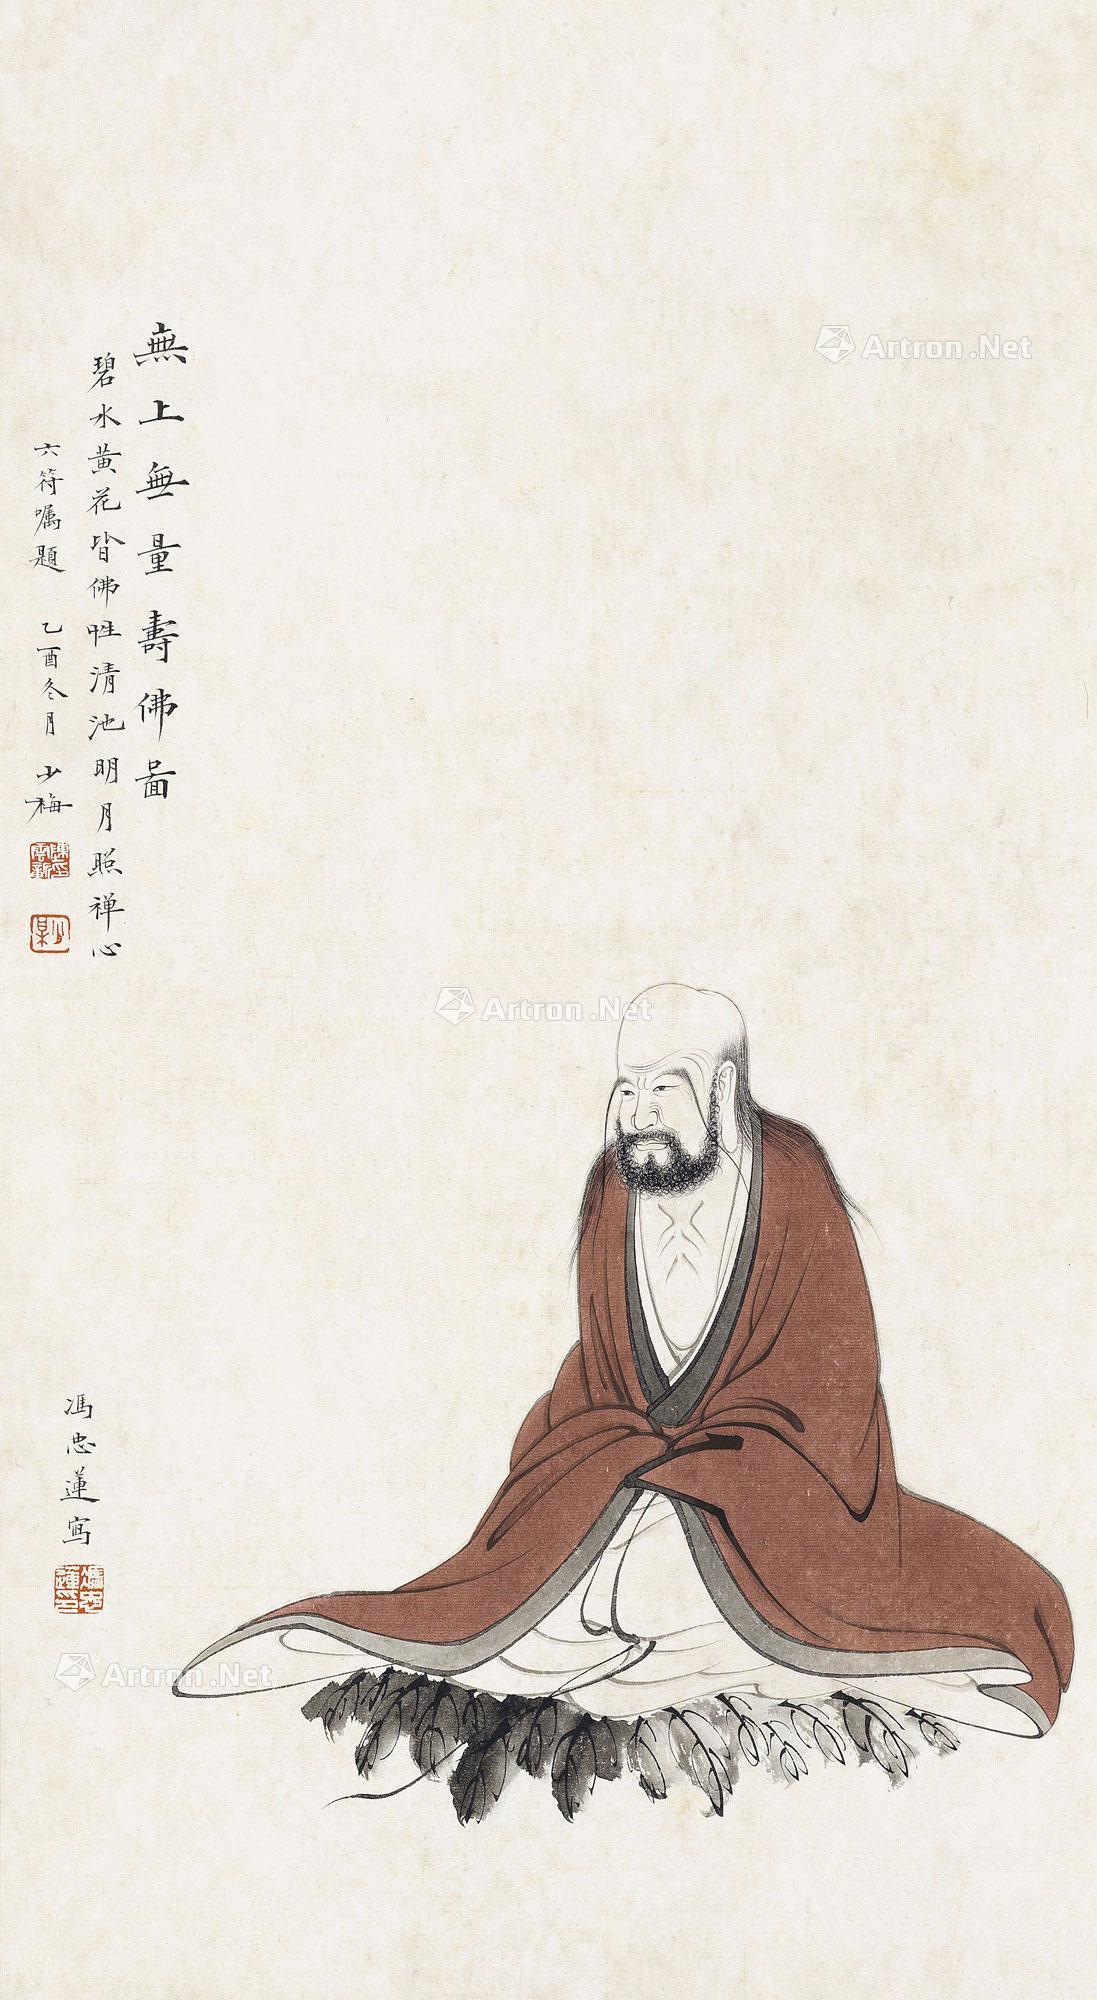 無上無量壽佛啚
碧水黄花皆佛性清池明月照禅心
六符嘱題 乙酉冬月 少梅
陳雲彰
馮忠蓮寫
馮忠蓮印
Artron.Net
Artron.Net
Artron.Net